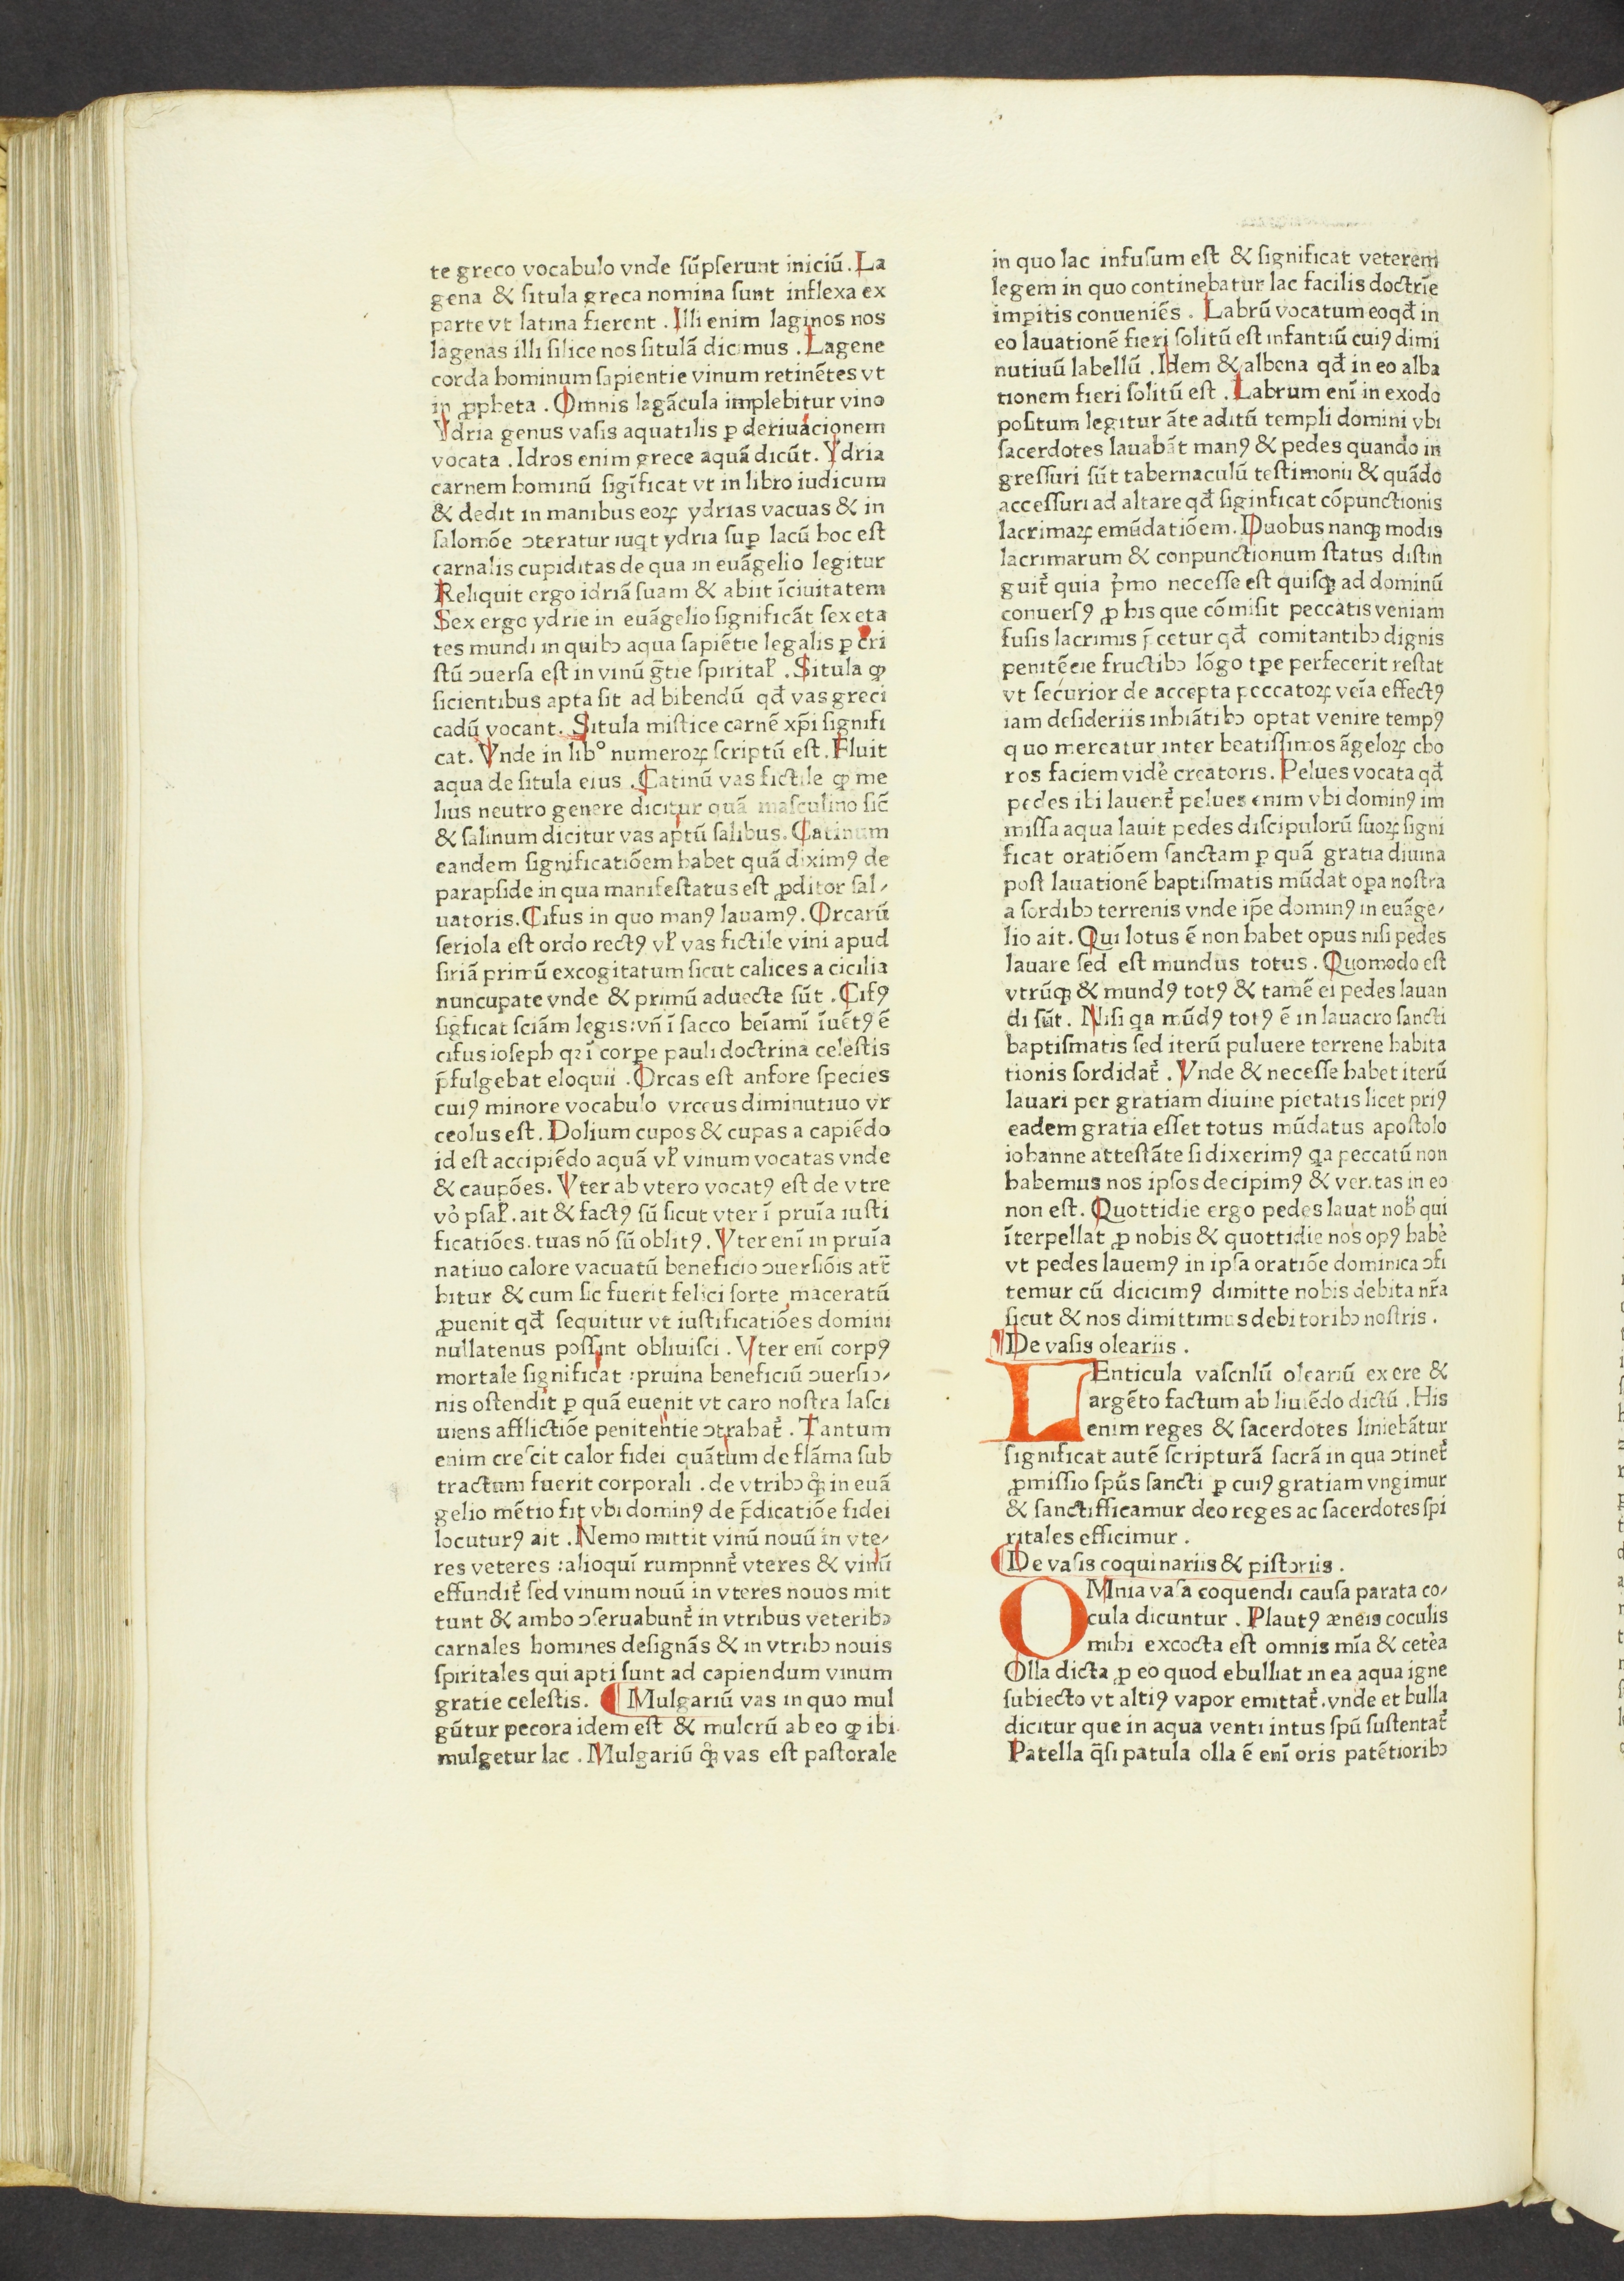 te greco vocabulo vnde sūpserunt iniciū. La
gena & situla greca nomina sunt inflexa ex
parte vt latina fierent . Illi enim laginos nos
lagenas illi silice nos situlā dicimus . Lagene
corda hominum sapientie vinum retinētes vt
in ꝓpheta . Omnis lagācula implebitur vino
Ydria genus vasis aquatilis ꝑ deriuacionem
vocata . Idros enim grece aquā dicūt. Ydria
carnem hominū sigīficat vt in libro iudicum
& dedit in manibus eoꝝ ydrias vacuas & in
salomōe ↄteratur iuqt ydria suꝑ lacū hoc est
carnalis cupiditas de qua in euāgelio legitur
Reliquit ergo idriā suam & abiit īciuitatem
Sex ergo ydrie in euāgelio significāt sex eta
tes mundi in quibↄ aqua sapiētie legalis ꝑ cri
stū ↄuersa est in vinū gr̄tie spiritaƚ . Situla ꝙ
sicientibus apta sit ad bibendū qđ vas greci
cadū vocant. Situla mistice carnē xp̄i signifi
cat. Vnde in libº numeroꝝ scriptū est. Fluit
aqua de situla eius . Catinū vas fictile ꝙ me
lius neutro genere dicitur quā masculino sic̄
& salinum dicitur vas aptū salibus. Catinum
eandem significatiōem habet quā diximꝯ de
parapside in qua manifestatus est ꝓditor sal⸗
uatoris. Cifus in quo manꝯ lauamꝯ. Orcarū
seriola est ordo rectꝯ vƚ vas fictile vini apud
siriā primū excogitatum sicut calices a cicilia
nuncupate vnde & primū aduecte sūt . Cifꝯ
sigficat sciām legis : vn̄ ī sacco beīamī īuētꝯ ē
cifus ioseph qꝛ ī corꝑe pauli doctrina celestis
p̄fulgebat eloquii . Orcas est anfore species
cuiꝯ minore vocabulo vrceus diminutiuo vr
ceolus est. Dolium cupos & cupas a capiēdo
id est accipiēdo aquā vƚ vinum vocatas vnde
& caupōes. Vter ab vtero vocatꝯ est de vtre
vo᷒ psaƚ. ait & factꝯ sū sicut vter ī pruīa iusti
ficatiōes. tuas nō sū oblitꝯ. Vter enī in pruīa
natiuo calore vacuatū beneficio ↄuersiōis att̄
hitur & cum sic fuerit felici sorte maceratū
ꝓuenit qđ sequitur vt iustificatiōes domini
nullatenus possint obliuisci . Vter enī corpꝯ
mortale significat : pruina beneficiū ↄuersio⸗
nis ostendit ꝑ quā euenit vt caro nostra lasci
uiens afflictiōe penitentie ↄtrahat᷒ . Tantum
enim crescit calor fidei quātum de flāma sub
tractum fuerit corporali . de vtribↄ qͦꝫ in euā
gelio mētio fit vbi dominꝯ de p̄dicatiōe fidei
locuturꝯ ait . Nemo mittit vinū nouū in vte⸗
res veteres : alioquī rumpnnt᷒ vteres & vinū
effundit᷒ sed vinum nouū in vteres nouos mit
tunt & ambo ↄseruabunt᷒ in vtribus veteribↄ
carnales homines designās & in vtribↄ nouis
spiritales qui apti sunt ad capiendum vinum
gratie celestis. ¶ Mulgariū vas in quo mul
gūtur pecora idem est & mulcrū ab eo ꝙ ibi
mulgetur lac . Mulgariū qͦꝫ vas est pastorale
in quo lac infusum est & significat veterem
legem in quo continebatur lac facilis doctrīe
imꝑitis conueniēs . Labrū vocatum eoqđ in
eo lauationē fieri solitū est infantiū cuiꝯ dimi
nutiuū labellū . Idem & albena qđ in eo alba
tionem fieri solitū est . Labrum enī in exodo
positum legitur āte aditū templi domini vbi
sacerdotes lauabāt manꝯ & pedes quando in
gressuri sūt tabernaculū testimonii & quādo
accessuri ad altare qđ siginficat cōpunctionis
lacrimaꝝ emūdatiōem. Duobus nanqꝫ modis
lacrimarum & conpunctionum status distin
guit᷒ quia pͥmo necesse est quisqꝫ ad dominū
conuersꝯ ꝓ his que cōmisit peccatis veniam
fusis lacrimis p̄cetur qđ comitantibↄ dignis
penitēcie fructibↄ lōgo tꝑe perfecerit restat
vt securior de accepta peccatoꝝ veīa effectꝯ
iam desideriis inhiātibↄ optat venire tempꝯ
quo mereatur inter beatissimos āgeloꝝ cho
ros faciem vide᷒ creatoris. Pelues vocata qđ
pedes ibi lauent᷒ pelues enim vbi dominꝯ im
missa aqua lauit pedes discipulorū suoꝝ signi
ficat oratiōem sanctam ꝑ quā gratia diuina
post lauationē baptismatis mūdat oꝑa nostra
a sordibↄ terrenis vnde ip̄e dominꝯ in euāge⸗
lio ait. Qui lotus ē non habet opus nisi pedes
lauare sed est mundus totus . Quomodo est
vtrūqꝫ & mundꝯ totꝯ & tamē ei pedes lauan
di sūt. Nisi qa mūdꝯ totꝯ ē in lauacro sancti
baptismatis sed iterū puluere terrene habita
tionis sordidat᷒ . Vnde & necesse habet iterū
lauari per gratiam diuine pietatis licet priꝯ
eadem gratia esset totus mūdatus apostolo
iohanne attestāte si dixerimꝯ qa peccatū non
habemus nos ipsos decipimꝯ & veritas in eo
non est. Quottidie ergo pedes lauat nob᷒ qui
īterpellat ꝓ nobis & quottidie nos opꝯ habe᷒
vt pedes lauemꝯ in ipsa oratiōe dominica ↄfi
temur cū dicicimꝯ dimitte nobis debita nr̄a
sicut & nos dimittimus debitoribↄ nostris .
¶ De vasis oleariis .
LEnticula vascnlū oleariū ex ere &
argēto factum ab liuiēdo dictū . His
enim reges & sacerdotes liniebātur
significat autē scripturā sacrā in qua ↄtinet᷒
ꝓmissio spūs sancti ꝑ cuiꝯ gratiam vngimur
& sanctifficamur deo reges ac sacerdotes spi
ritales efficimur .
¶ De vasis coquinariis & pistoriis .
OMnia vasa coquendi causa parata co⸗
cula dicuntur . Plautꝯ æneis coculis
mihi excocta est omnis mīa & cete᷒a
Olla dicta ꝓ eo quod ebulliat in ea aqua igne
subiecto vt altiꝯ vapor emittat᷒. vnde et bulla
dicitur que in aqua venti intus spū sustentat᷒
Patella q̄si patula olla ē enī oris patētioribↄ